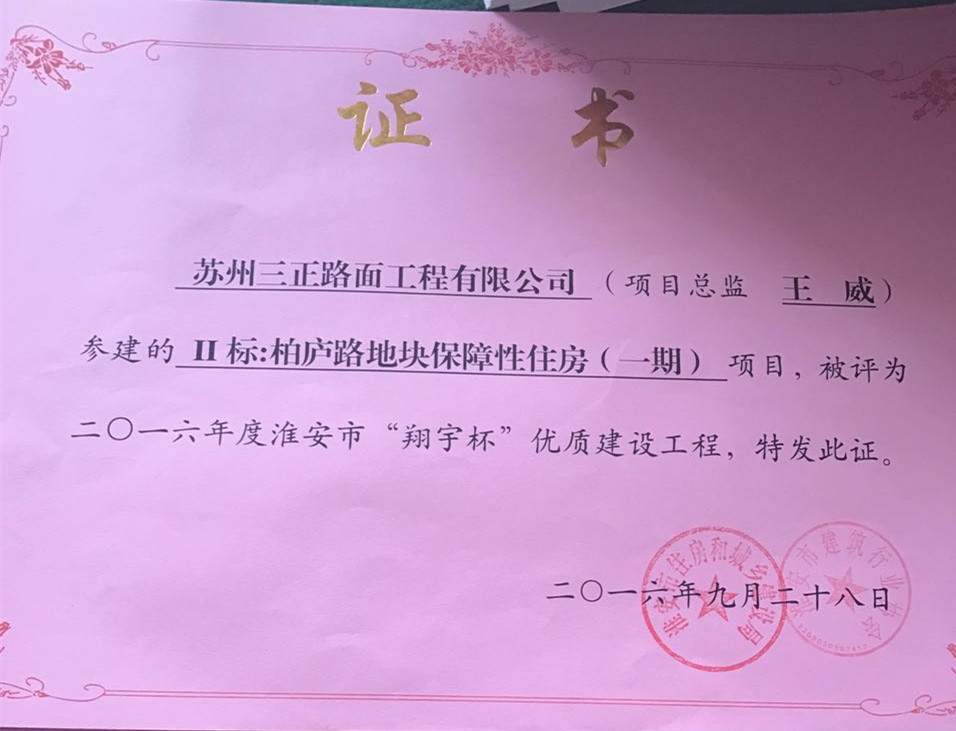 证 书
苏州三正路面工程有限公司（项目总监 王 威）
参建的 II 标:柏庐路地块保障性住房（一期）项目，被评为
二〇一六年度淮安市“翔宇杯”优质建设工程，特发此证。
淮安市住房和城乡建设局
淮安市建筑行业协会
二〇一六年九月二十八日